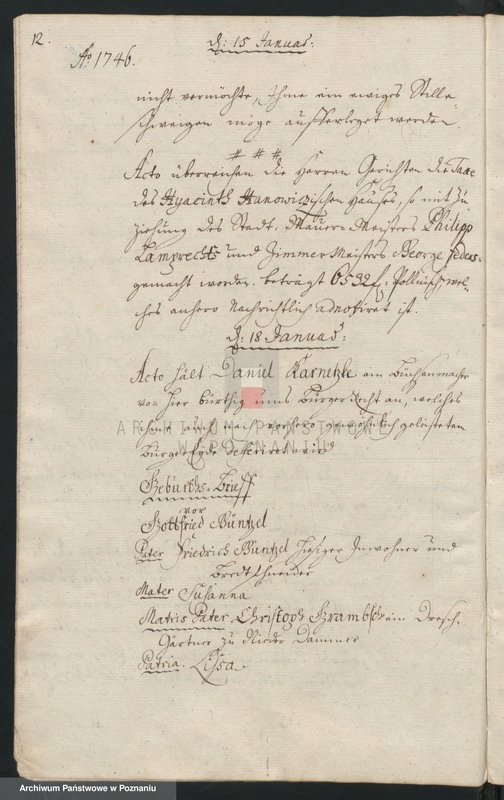 12.
d: 15 Januar:
Aº 1746.
nicht vermöchte, Ihme ein ewiges Stille-
schweigen möge aufferleget werden.
# # #
Acto überreichen die Herren Gerichten die Taxe
des Hyacinth Hanowiczischen Hauses, so mit Zu
ziehung des Stadt-Mauer-Meisters Philipp
Lamprechts und Zimmer Meisters George
gemacht worden. beträgt 6532 f. Pollnisch wel-
ches anhero Nachrichtlich adnotiret ist.
d: 18 Januar:
Acto hält Daniel Karnetzke ein Büchsenmacher
von hier bürthig umb Bürger Recht an, welches
ihme auch nach vorhero gewöhnlich geleisteten
Bürger Eyde deferiret wird
Geburths-Brieff
vor
Gottfried Büntzel
Pater Friedrich Büntzel hiesiger Inwohner und
Brettschneider
Mater Susanna
Matris Pater. Christoph ein Dresch-
Gärtner zu Nieder Dammer
Patria. Lissa.
ARCHIWUM PAŃSTWOWE
W POZNANIU
Archiwum Państwowe w Poznaniu